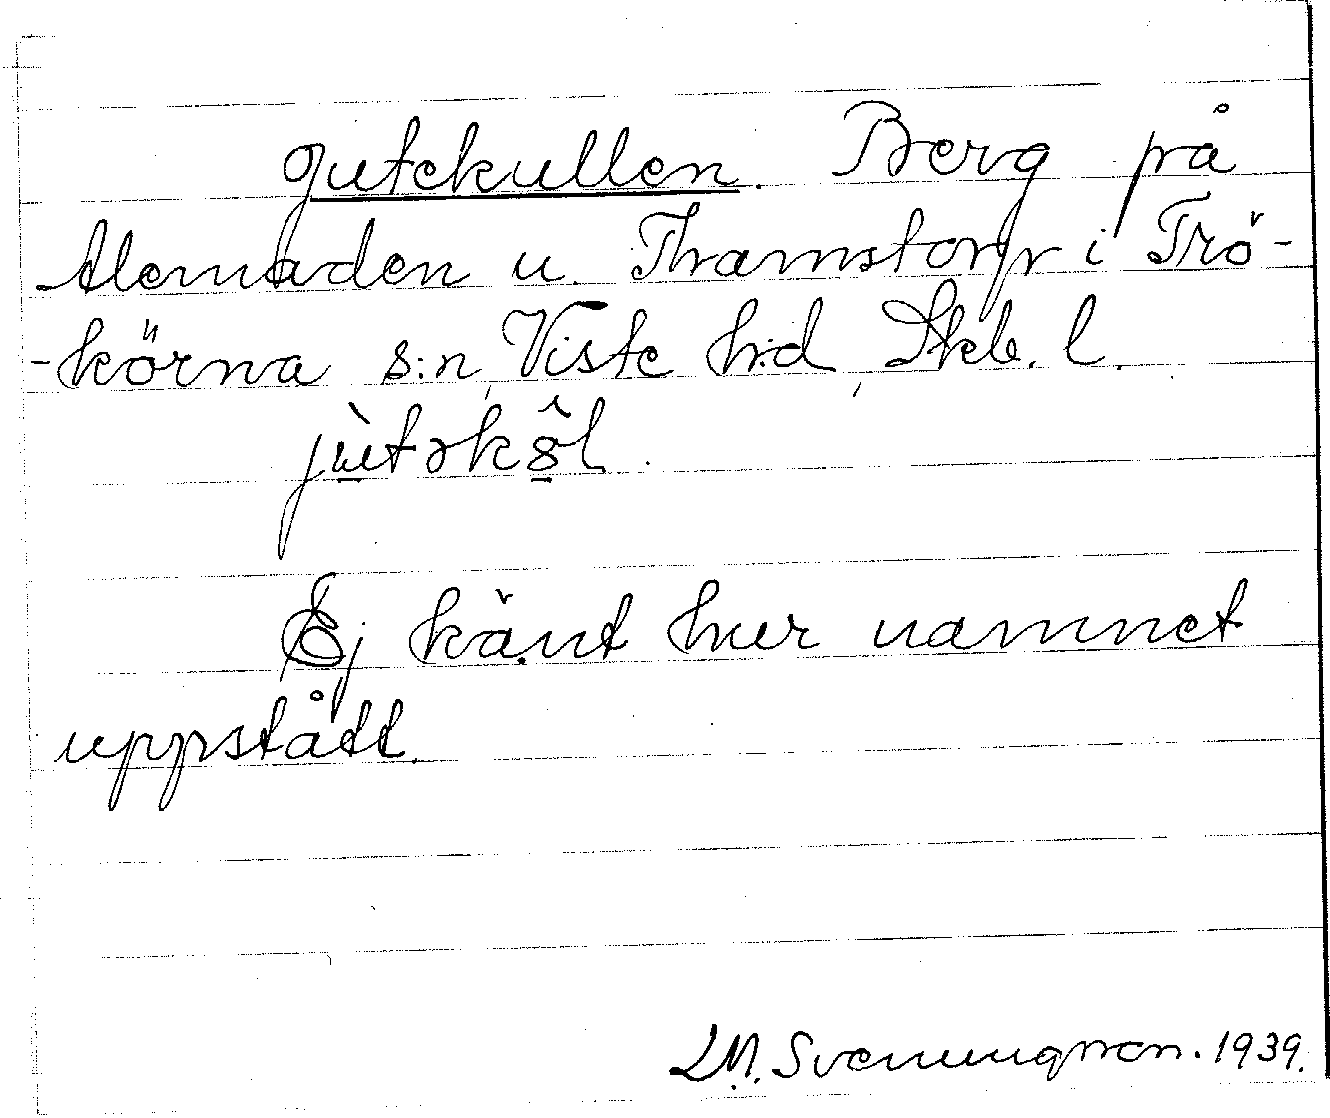 Jutekullen. Berg på
Alemaden u. Thramstorp i Trö-
-körna s:n, Viste h:d, Skb. l.
jùtəkôl.
Ej känt hur namnet
uppstått.
L.M. Svenungson. 1939.